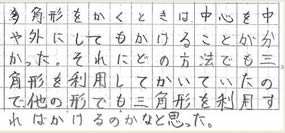 多角形をかくときは中心を中
や外にしてもかけることが分
かった。それにどの方法でも三
角形を利用してかいていたの
で他の形でも三角形を利用す
ればかけるのかなと思った。